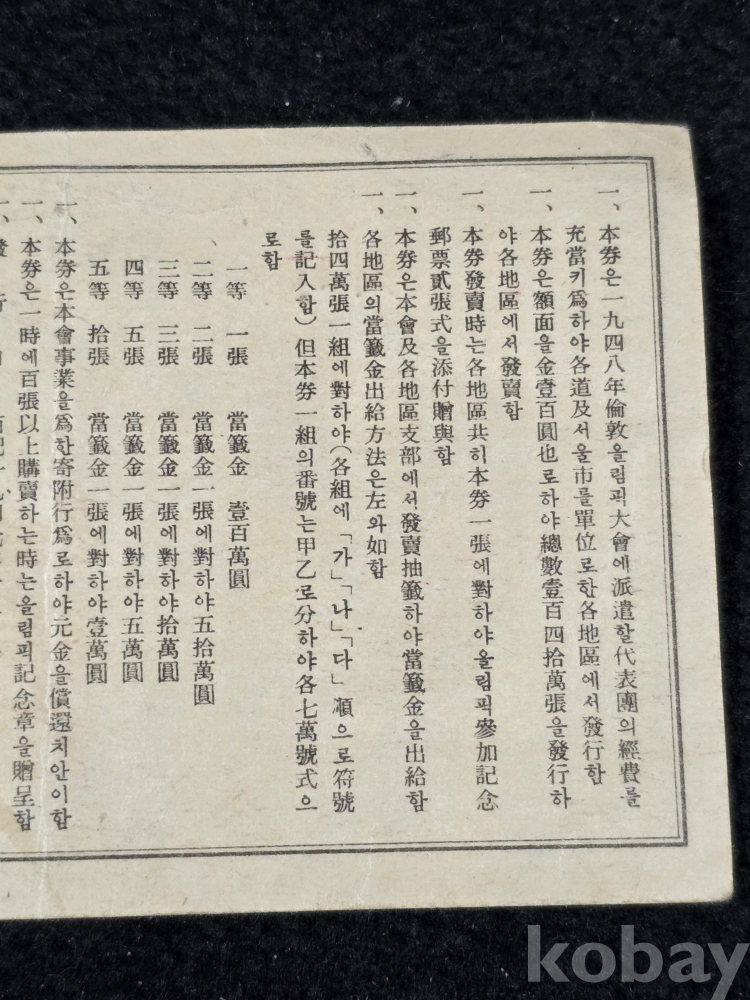 一、本券은一九四八年倫敦올림픽大會에派遣할代表團의經費를
充當키爲하야各道及서울市를單位로한各地區에서發行함
一、本券은額面을金壹百圓也로하야總數壹百四拾萬張을發行하
야各地區에서發賣함
一、本券發賣時는各地區共히本券一張에對하야올림픽參加記念
郵票貳張式을添付贈與함
一、本券은本會及各地區支部에서發賣抽籤하야當籤金을出給함
一、各地區의當籤金出給方法은左와如함
拾四萬張一組에對하야(各組에「가」「나」「다」順으로符號
를記入함)但本券一組의番號는甲乙로分하야各七萬號式으
로함
一等 一張 當籤金 壹百萬圓
二等 二張 當籤金一張에對하야五拾萬圓
三等 三張 當籤金一張에對하야拾萬圓
四等 五張 當籤金一張에對하야五萬圓
五等 拾張 當籤金一張에對하야壹萬圓
一、本券은本會事業을爲한寄附行爲로하야元金을償還치안이함
一、本券은一時에百張以上購買하는時는올림픽記念章을贈呈함
一、發行
kobay